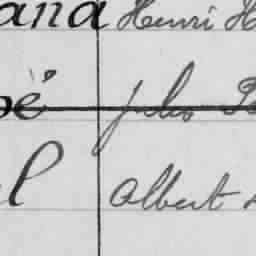 ana Henri H
ë Jules
l Albert